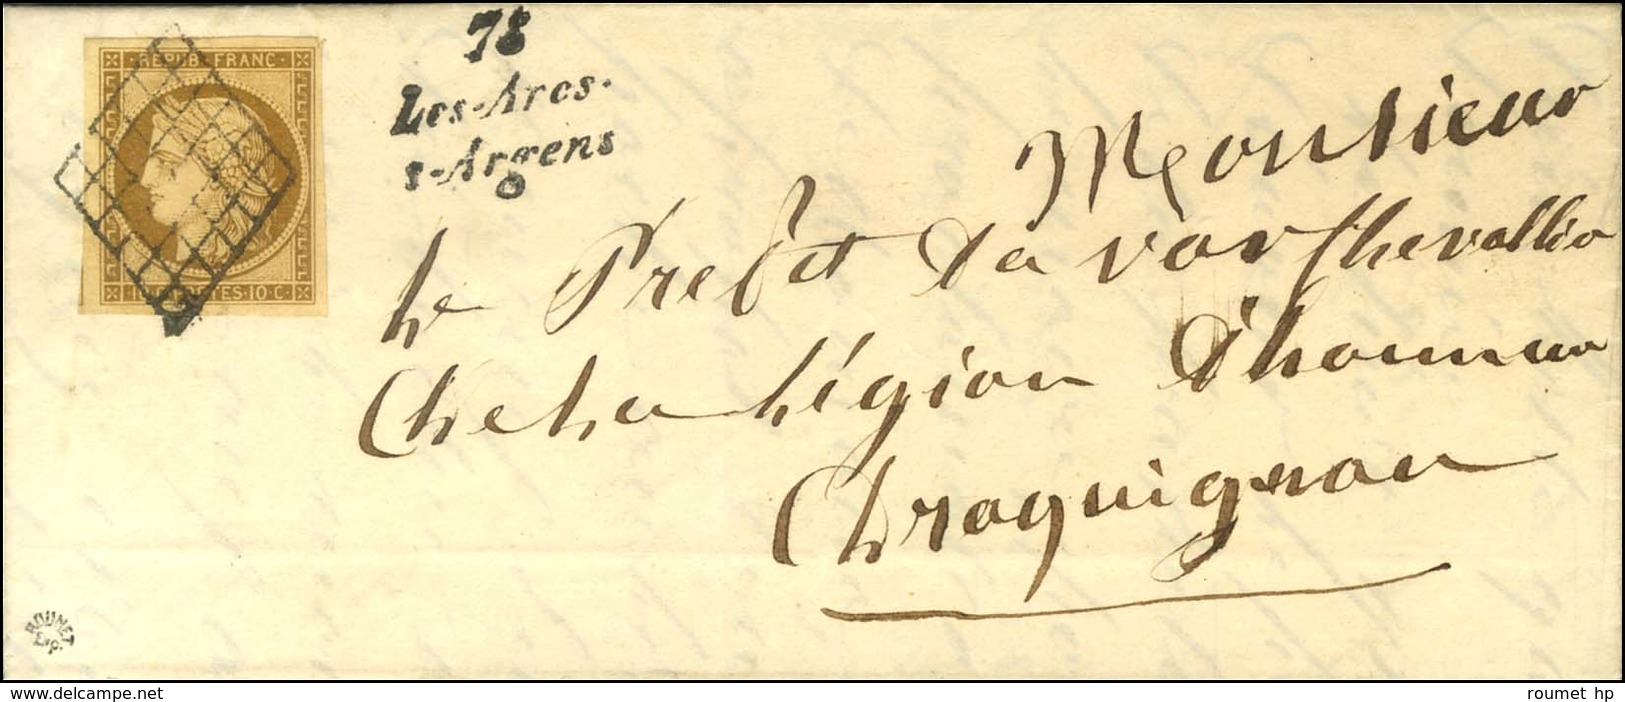 REPUB. FRANC.
10 · C ·
78
Les-Arcs-
s-Argens
Monsieur
le Prefet Du var Chevallier
De La Légion D'honneur
Draguignan
ROUMET
Exp.
www.delcampe.net
roumet hp